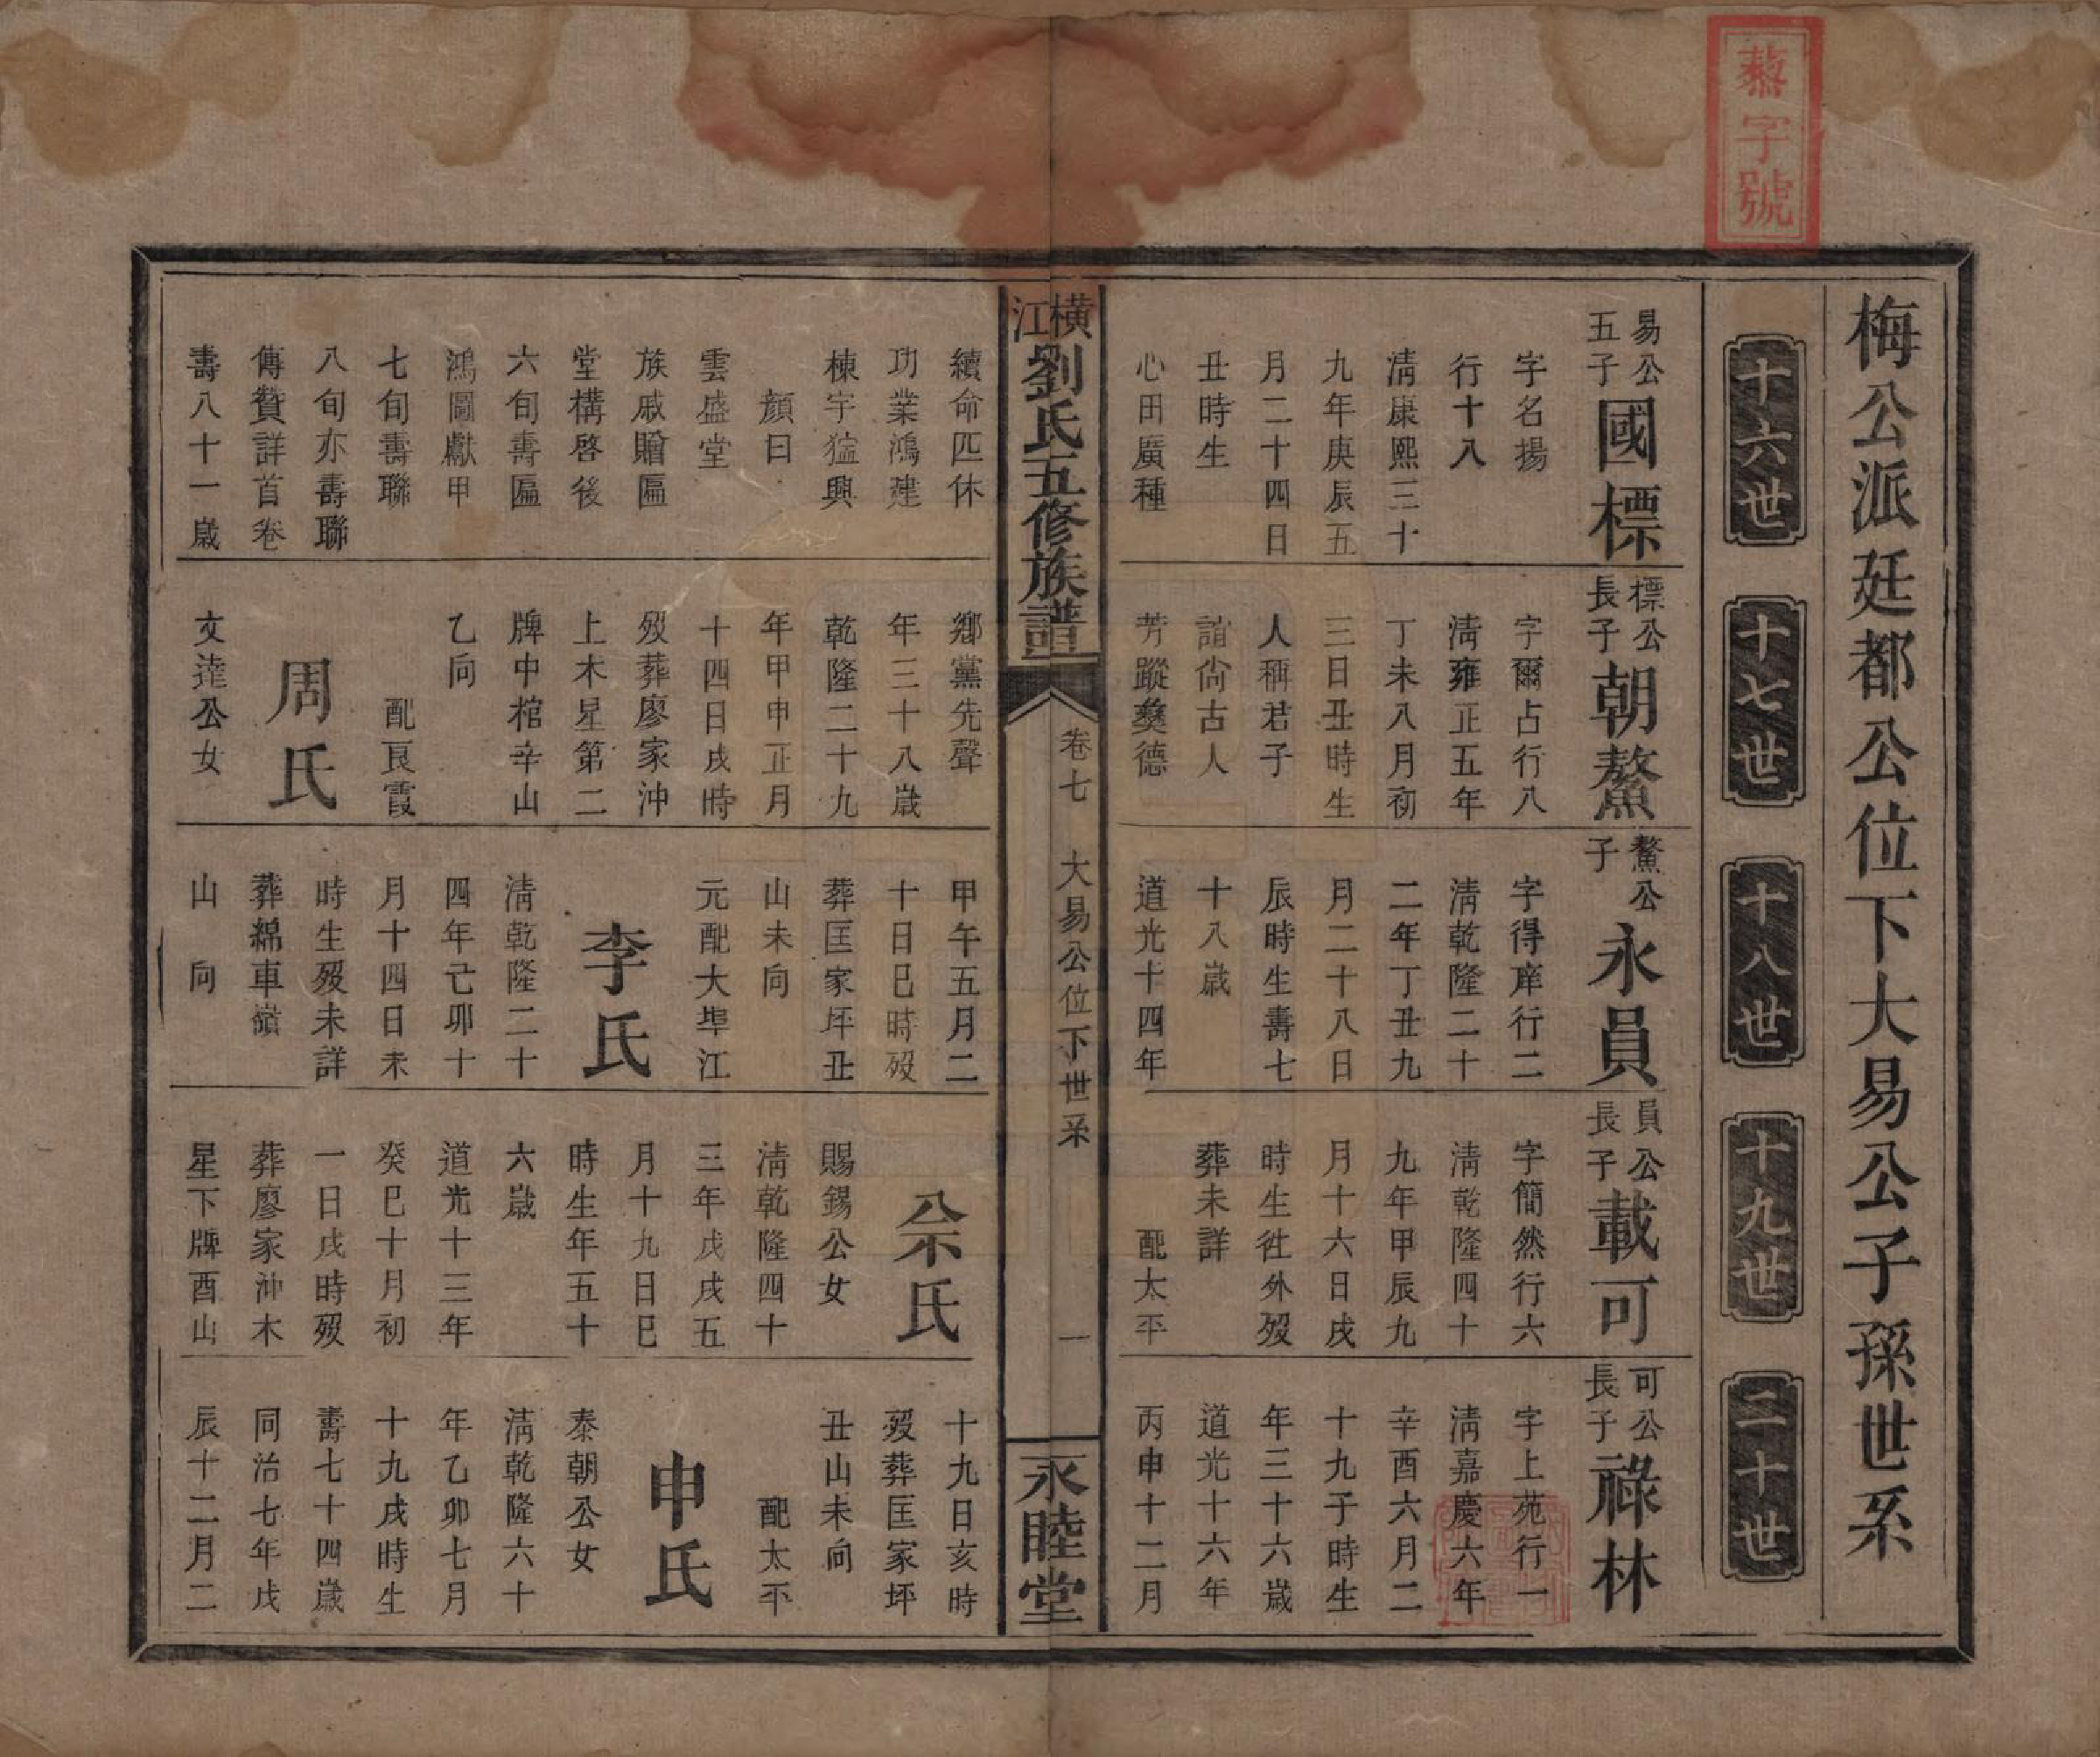 藜字號
梅公派廷都公位下大易公子孫世系
十六世
十七世
十八世
十九世
二十世
易公
五子
國標
字名揚
行十八
清康熙三十
九年庚辰五
月二十四日
丑時生
心田廣種
標公
長子
朝鰲
字爾占行八
清雍正五年
丁未八月初
三日丑時生
人稱君子
誼尚古人
芳蹤㜫德
鰲公
子
永員
字得庠行二
清乾隆二十
二年丁丑九
月二十八日
辰時生壽七
十八歲
道光十四年
員公
長子
載可
字簡然行六
清乾隆四十
九年甲辰九
月十六日戌
時生徃外歿
葬未詳
配太平
可公
長子
祿林
字上苑行一
清嘉慶六年
辛酉六月二
十九子時生
年三十六歲
道光十六年
丙申十二月
橫江劉氏五修族譜
卷七
大易公位下世系
一
永睦堂
續命匹休
功業鴻建
棟宇猛興
顏曰
雲盛堂
族戚贈匾
堂構啓後
六旬壽匾
鴻圖獻甲
七旬壽聯
八旬亦壽聯
傳贊詳首卷
壽八十一歲
鄉黨先聲
年三十八歲
乾隆二十九
年甲申正月
十四日戌時
歿葬廖家沖
上木星第二
牌中棺辛山
乙向
配良霞
周氏
文達公女
甲午五月二
十日巳時歿
葬匡家坪丑
山未向
元配大埠江
李氏
清乾隆二十
四年己卯十
月十四日未
時生歿未詳
葬綿車嶺
山向
佘氏
賜錫公女
清乾隆四十
三年戊戌五
月十九日巳
時生年五十
六歲
道光十三年
癸巳十月初
一日戌時歿
葬廖家沖木
星下牌酉山
十九日亥時
歿葬匡家坪
丑山未向
配太平
申氏
泰朝公女
清乾隆六十
年乙卯七月
十九戌時生
壽七十四歲
同治七年戊
辰十二月二